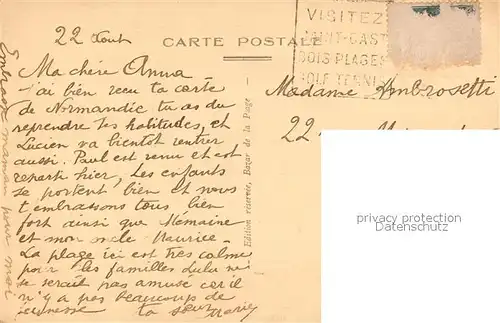 VISITEZ
SAINT-CAST
BOIS PLAGES
GOLF TENNIS
CARTE POSTALE
22 Aout
Ma chère Anna
j'ai bien reçu ta carte
de Normandie tu as du
reprendre tes habitudes, et
Lucien va bientot rentrer
aussi. Paul est venu et est
reparti hier, Les enfants
se portent bien et nous
t'embrassons tous bien
fort ainsi que Mémaine
et mon oncle Maurice.
La plage ici est très calme
pour les familles Lulu ne
se serait pas amusé car il
n'y a pas beaucoup de
jeunesse ta sœur
Marie
Embrasse maman pour moi
Edition réservée, Bazar de la Plage
Madame Ambrosetti
22
privacy protection
copyright protection